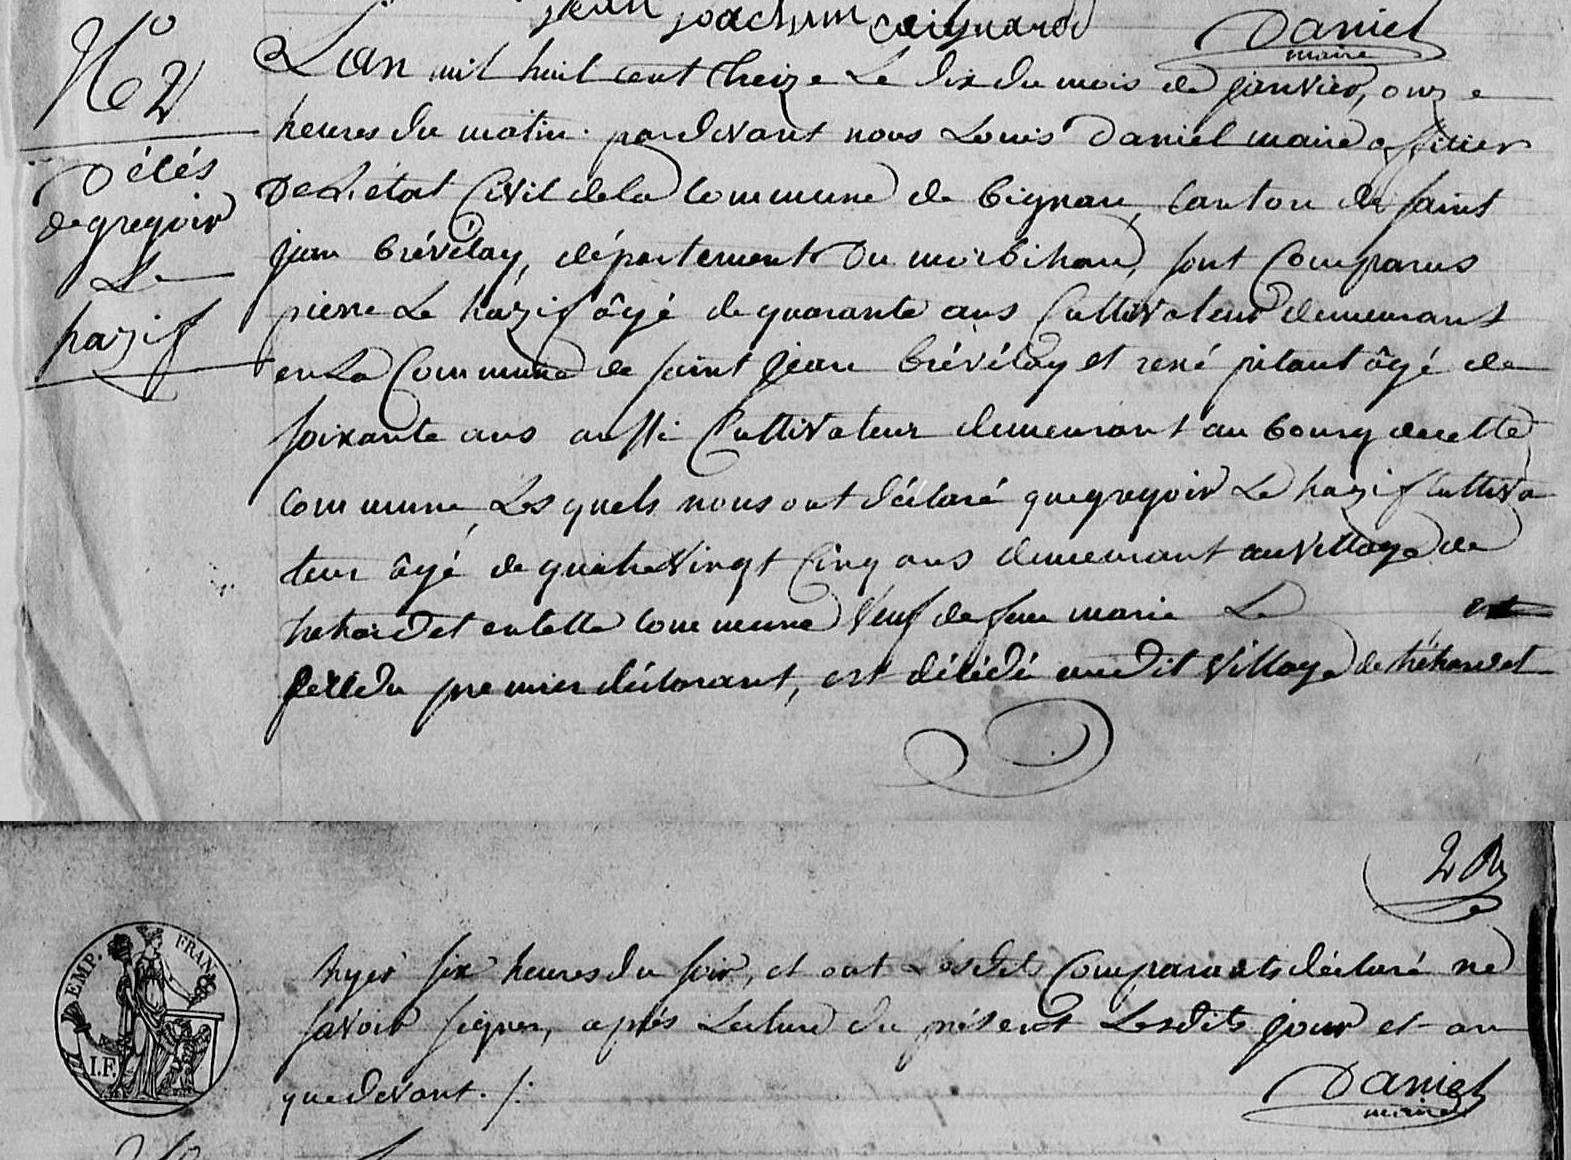 jean joachim
Daniel
maire
N.o 2
Décés
de gregoir
Le
hazif
L'an mil huit cent treize Le dix du mois de janvier, onze
heures du matin. pardevant nous Louis Daniel maire officier
De L'état Civil de la Commune de bignan, Canton de saint
jean brévélay, département Du morbihan, sont Comparus
pierre Le hazif âgé de quarante ans Cultivateur demeurant
en La Commune de saint jean brévélay et rené pitaut âgé de
soixante ans aussi Cultivateur demeurant au bourg de cette
Commune, Les quels nous ont déclaré que gregoir Le hazif Cultiva
teur âgé de quatre Vingt Cinq ans demeurant au Village de
hehardet en cette Commune Veuf de feue marie Le
du premier déclarant, est décédé au dit Village de héhardet
2
hyer six heures du soir, et ont Lesdits Comparants déclaré ne
savoir signer, après Lecture du présent Lesdits jour et an
que devant. /:
Daniel
maire
EMP. FRAN.
I.F.